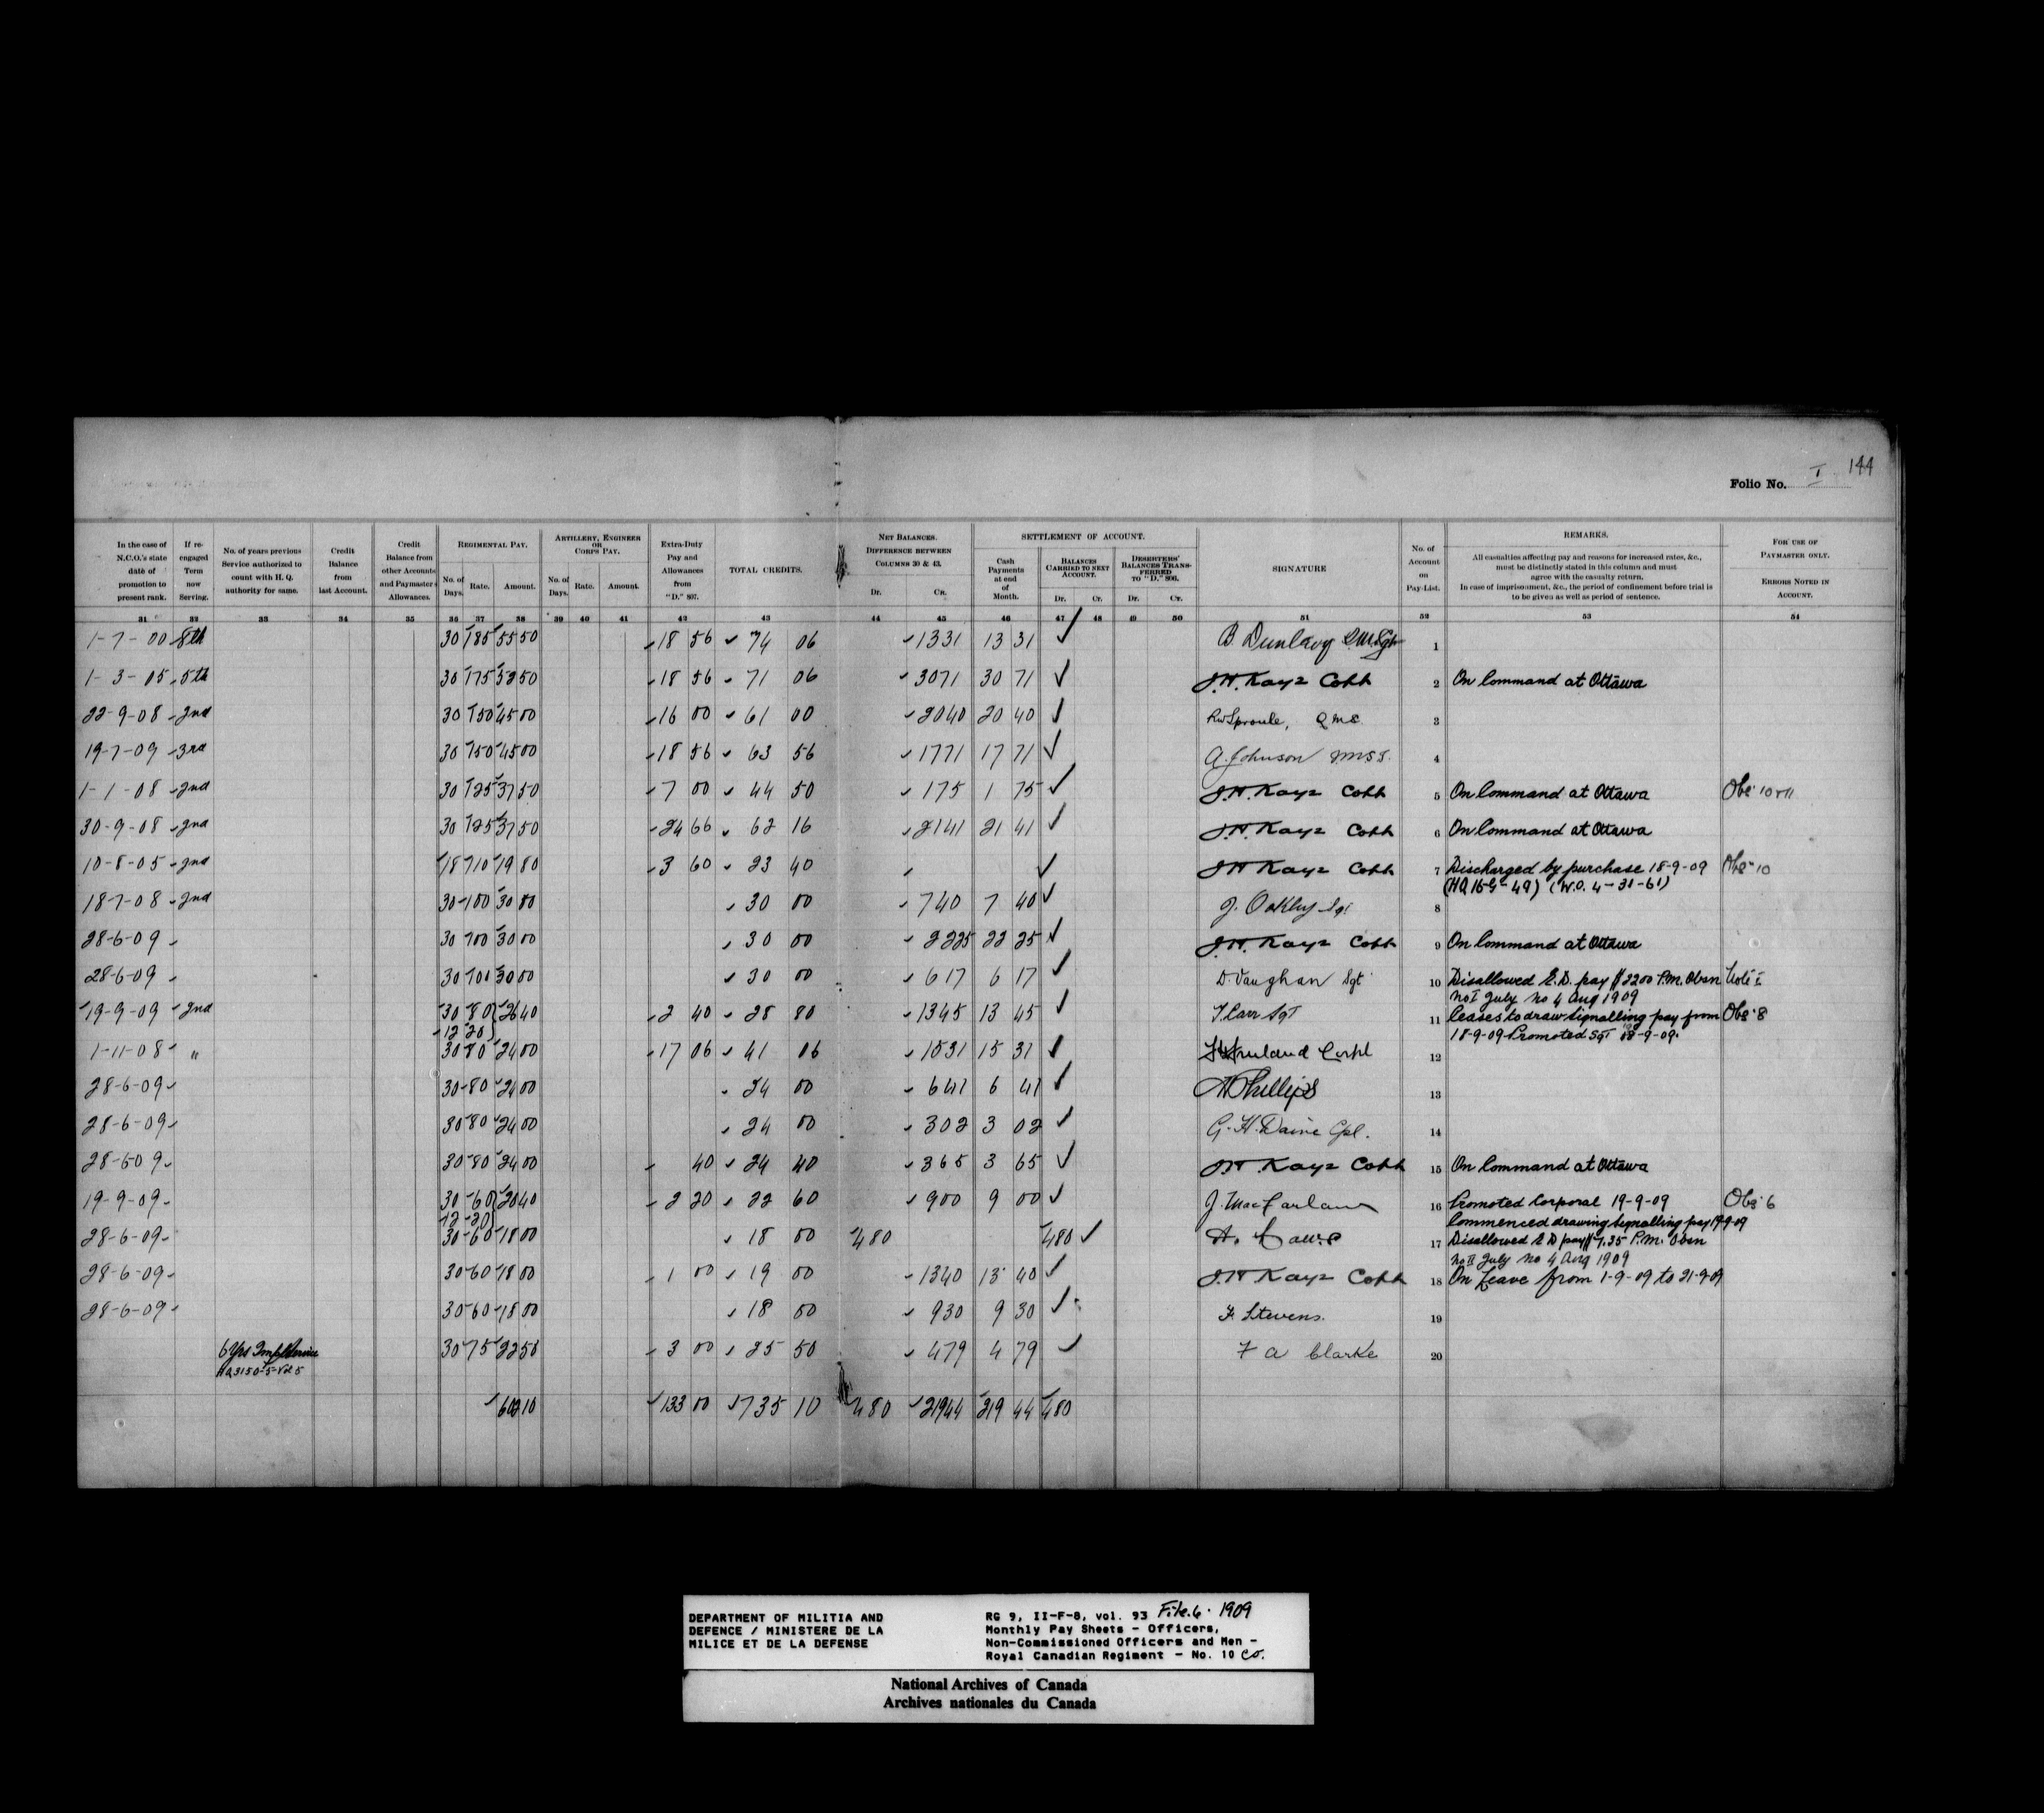 144
Folio No. I
In the case of N.C.O.'s state date of promotion to present rank. | If re-engaged Term now Serving. | No. of years previous Service authorized to count with H. Q. authority for same. | Credit Balance from last Account. | Credit Balance from other Accounts and Paymaster's Allowances. | REGIMENTAL PAY. No. of Days. Rate. Amount. | ARTILLERY, ENGINEER OR CORPS PAY. No. of Days. Rate. Amount. | Extra-Duty Pay and Allowances from "D." 807. | TOTAL CREDITS. | NET BALANCES. DIFFERENCE BETWEEN COLUMNS 30 & 43. Dr. Cr. | SETTLEMENT OF ACCOUNT. Cash Payments at end of Month. BALANCES CARRIED TO NEXT ACCOUNT. Dr. Cr. DESERTERS' BALANCES TRANSFERRED TO "D." 806. Dr. Cr. | SIGNATURE | No. of Account on Pay-List. | REMARKS. All casualties affecting pay and reasons for increased rates, &c., must be distinctly stated in this column and must agree with the casualty return. In case of imprisonment, &c., the period of confinement before trial is to be given as well as period of sentence. | FOR USE OF PAYMASTER ONLY. ERRORS NOTED IN ACCOUNT.
31 32 33 34 35 36 37 38 39 40 41 42 43 44 45 46 47 48 49 50 51 52 53 54
1-7-00 8th 30 185 55 50 18 56 74 06 13 31 13 31 B. Dunlavy 1
1-3-05 5th 30 175 52 50 18 56 71 06 30 71 30 71 J.H. Kaye 2 On Command at Ottawa
22-9-08 2nd 30 150 45 00 16 00 61 00 20 40 20 40 RW Sproule, QMS 3
19-7-09 3rd 30 150 45 00 18 56 63 56 17 71 17 71 A. Johnson 4
1-1-08 2nd 30 125 37 50 7 00 44 50 1 75 1 75 J.H. Kaye 5 On Command at Ottawa Obs 10
30-9-08 2nd 30 125 37 50 24 66 62 16 21 41 21 41 J.H. Kaye 6 On Command at Ottawa
10-8-05 2nd 18 110 19 80 3 60 23 40 J.H. Kaye 7 Discharged by purchase 18-9-09 Obs 10
18-7-08 2nd 30 100 30 00 30 00 7 40 7 40 J. Oakley Sgt 8
28-6-09 30 100 30 00 30 00 22 25 22 25 J.H. Kaye 9 On Command at Ottawa
28-6-09 30 100 30 00 30 00 6 17 6 17 D. Vaughan Sgt 10 Disallowed E.D. pay $22 00 P.M. Obsn
No I July No 4 Aug 1909
19-9-09 2nd 30 80 26 40 2 40 28 80 13 45 13 45 T. Carr Sgt 11 Ceases to draw signalling pay from Obs 8
12 20 18-9-09 Promoted Sgt
1-11-08 " 30 80 24 00 17 06 41 06 15 31 15 31 Corpl 12
28-6-09 30 80 24 00 24 00 6 41 6 41 Phillips 13
28-6-09 30 80 24 00 24 00 3 02 3 02 G. H. Daine Cpl. 14
28-6 09 30 80 24 00 40 24 40 3 65 3 65 J.H. Kaye 15 On Command at Ottawa
19-9-09 30 60 20 40 2 20 22 60 9 00 9 00 J. MacFarlane 16 Promoted Corporal 19-9-09 Obs 6
12 20 Commenced drawing signalling pay 19-9-09
28-6-09 30 60 18 00 18 00 4 80 4 80 17 Disallowed E D pay $7.35 P.M. Obsn
No II July No 4 Aug 1909
28-6-09 30 60 18 00 1 00 19 00 13 40 13 40 J.H. Kaye 18 On Leave from 1-9-09 to 21-9-09
28-6-09 30 60 18 00 18 00 9 30 9 30 F. Stevens. 19
6 Yrs Impl Service 30 75 22 50 3 00 25 50 4 79 4 79 F A Clarke 20
602 10 133 00 735 10 4 80 219 44 219 44 4 80
DEPARTMENT OF MILITIA AND
DEFENCE / MINISTERE DE LA
MILICE ET DE LA DEFENSE
RG 9, II-F-8, vol. 93 File.6. 1909
Monthly Pay Sheets - Officers,
Non-Commissioned Officers and Men -
Royal Canadian Regiment - No. 10 Co.
National Archives of Canada
Archives nationales du Canada